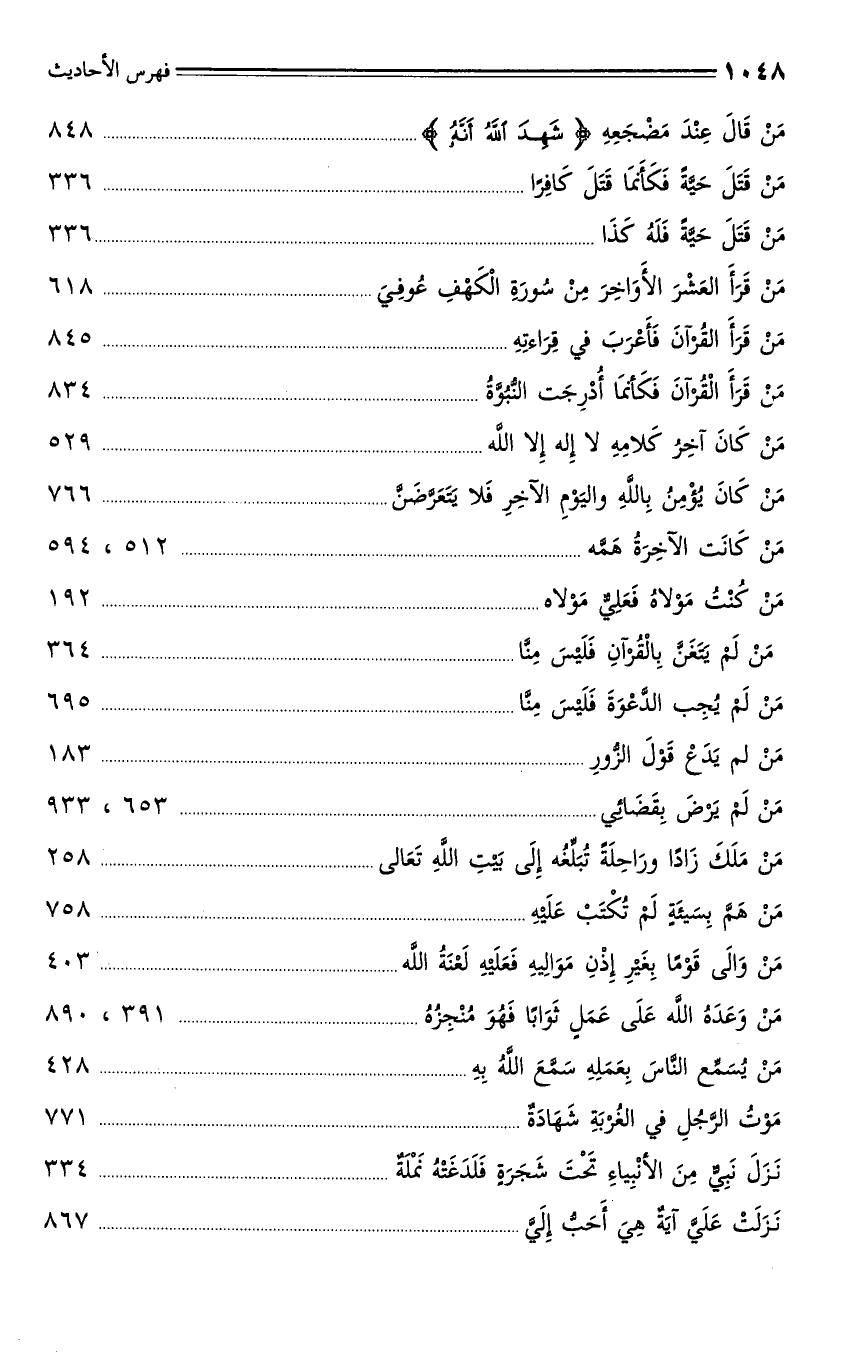 ١٠٤٨ فهرس الأحاديث
مَنْ قَالَ عِنْدَ مَضْجَعِهِ ﴿ شَهِدَ ٱللَّهُ أَنَّهُ ﴾ ........ ٨٤٨
مَنْ قَتَلَ حَيَّةً فَكَأَنَمَّا قَتَلَ كَافِرًا ........ ٣٣٦
مَنْ قَتَلَ حَيَّةً فَلَهُ كَذَا ........ ٣٣٦
مَنْ قَرَأَ العَشْرَ الأَوَاخِرَ مِنْ سُورَةِ الْكَهْفِ عُوفِيَ ........ ٦١٨
مَنْ قَرَأَ القُرْآنَ فَأَعْرَبَ في قِرَاءتِهِ ........ ٨٤٥
مَنْ قَرَأَ الْقُرْآنَ فَكَأنمَّا أُدْرِجَت النُّبُوَّةُ ........ ٨٣٤
مَنْ كَانَ آخِرُ كَلامِهِ لا إِله إِلا اللَّه ........ ٥٢٩
مَنْ كَانَ يُؤْمِنُ بِاللَّهِ واليَوْمِ الآخِرِ فَلا يَتَعَرَّضَنَّ ........ ٧٦٦
مَنْ كَانَت الآخِرَةُ هَمَّه ........ ٥١٢ ، ٥٩٤
مَنْ كُنْتُ مَوْلاهُ فَعَلِيٌّ مَوْلاه ........ ١٩٢
مَنْ لَمْ يَتَغَنَّ بِالْقُرْآنِ فَلَيْسَ مِنَّا ........ ٣٦٤
مَنْ لَمْ يُجِب الدَّعْوَةَ فَلَيْسَ مِنَّا ........ ٦٩٥
مَنْ لم يَدَعْ قَوْلَ الزُّورِ ........ ١٨٣
مَنْ لَمْ يَرْضَ بِقَضَائِي ........ ٦٥٣ ، ٩٣٣
مَنْ مَلَكَ زَادًا ورَاحِلَةً تُبَلِّغُه إِلَى بَيْتِ اللَّهِ تَعَالى ........ ٢٥٨
مَنْ هَمَّ بِسَيئَةٍ لَمْ تُكْتَبْ عَلَيْهِ ........ ٧٥٨
مَنْ وَالَى قَوْمًا بِغَيْرِ إِذْنِ مَوَالِيهِ فَعَلَيْهِ لَعْنَةُ اللَّه ........ ٤٠٣
مَنْ وَعَدَهُ اللَّه عَلَى عَمَلٍ ثَوَابًا فَهُوَ مُنْجِزُهُ ........ ٣٩١ ، ٨٩٠
مَنْ يُسَمِّع النَّاسَ بِعَمَلِهِ سَمَّعَ اللَّهُ بِهِ ........ ٤٢٨
مَوْتُ الرَّجُلِ في الغُرْبَةِ شَهَادَةٌ ........ ٧٧١
نَزَلَ نَبِيٌّ مِنَ الأَنْبِياءِ تَحْتَ شَجَرَةٍ فَلَدَغَتْهُ نَمْلَةٌ ........ ٣٣٤
نَزَلَتْ عَلَيَّ آيَةٌ هِيَ أَحَبُّ إِلَيَّ ........ ٨٦٧